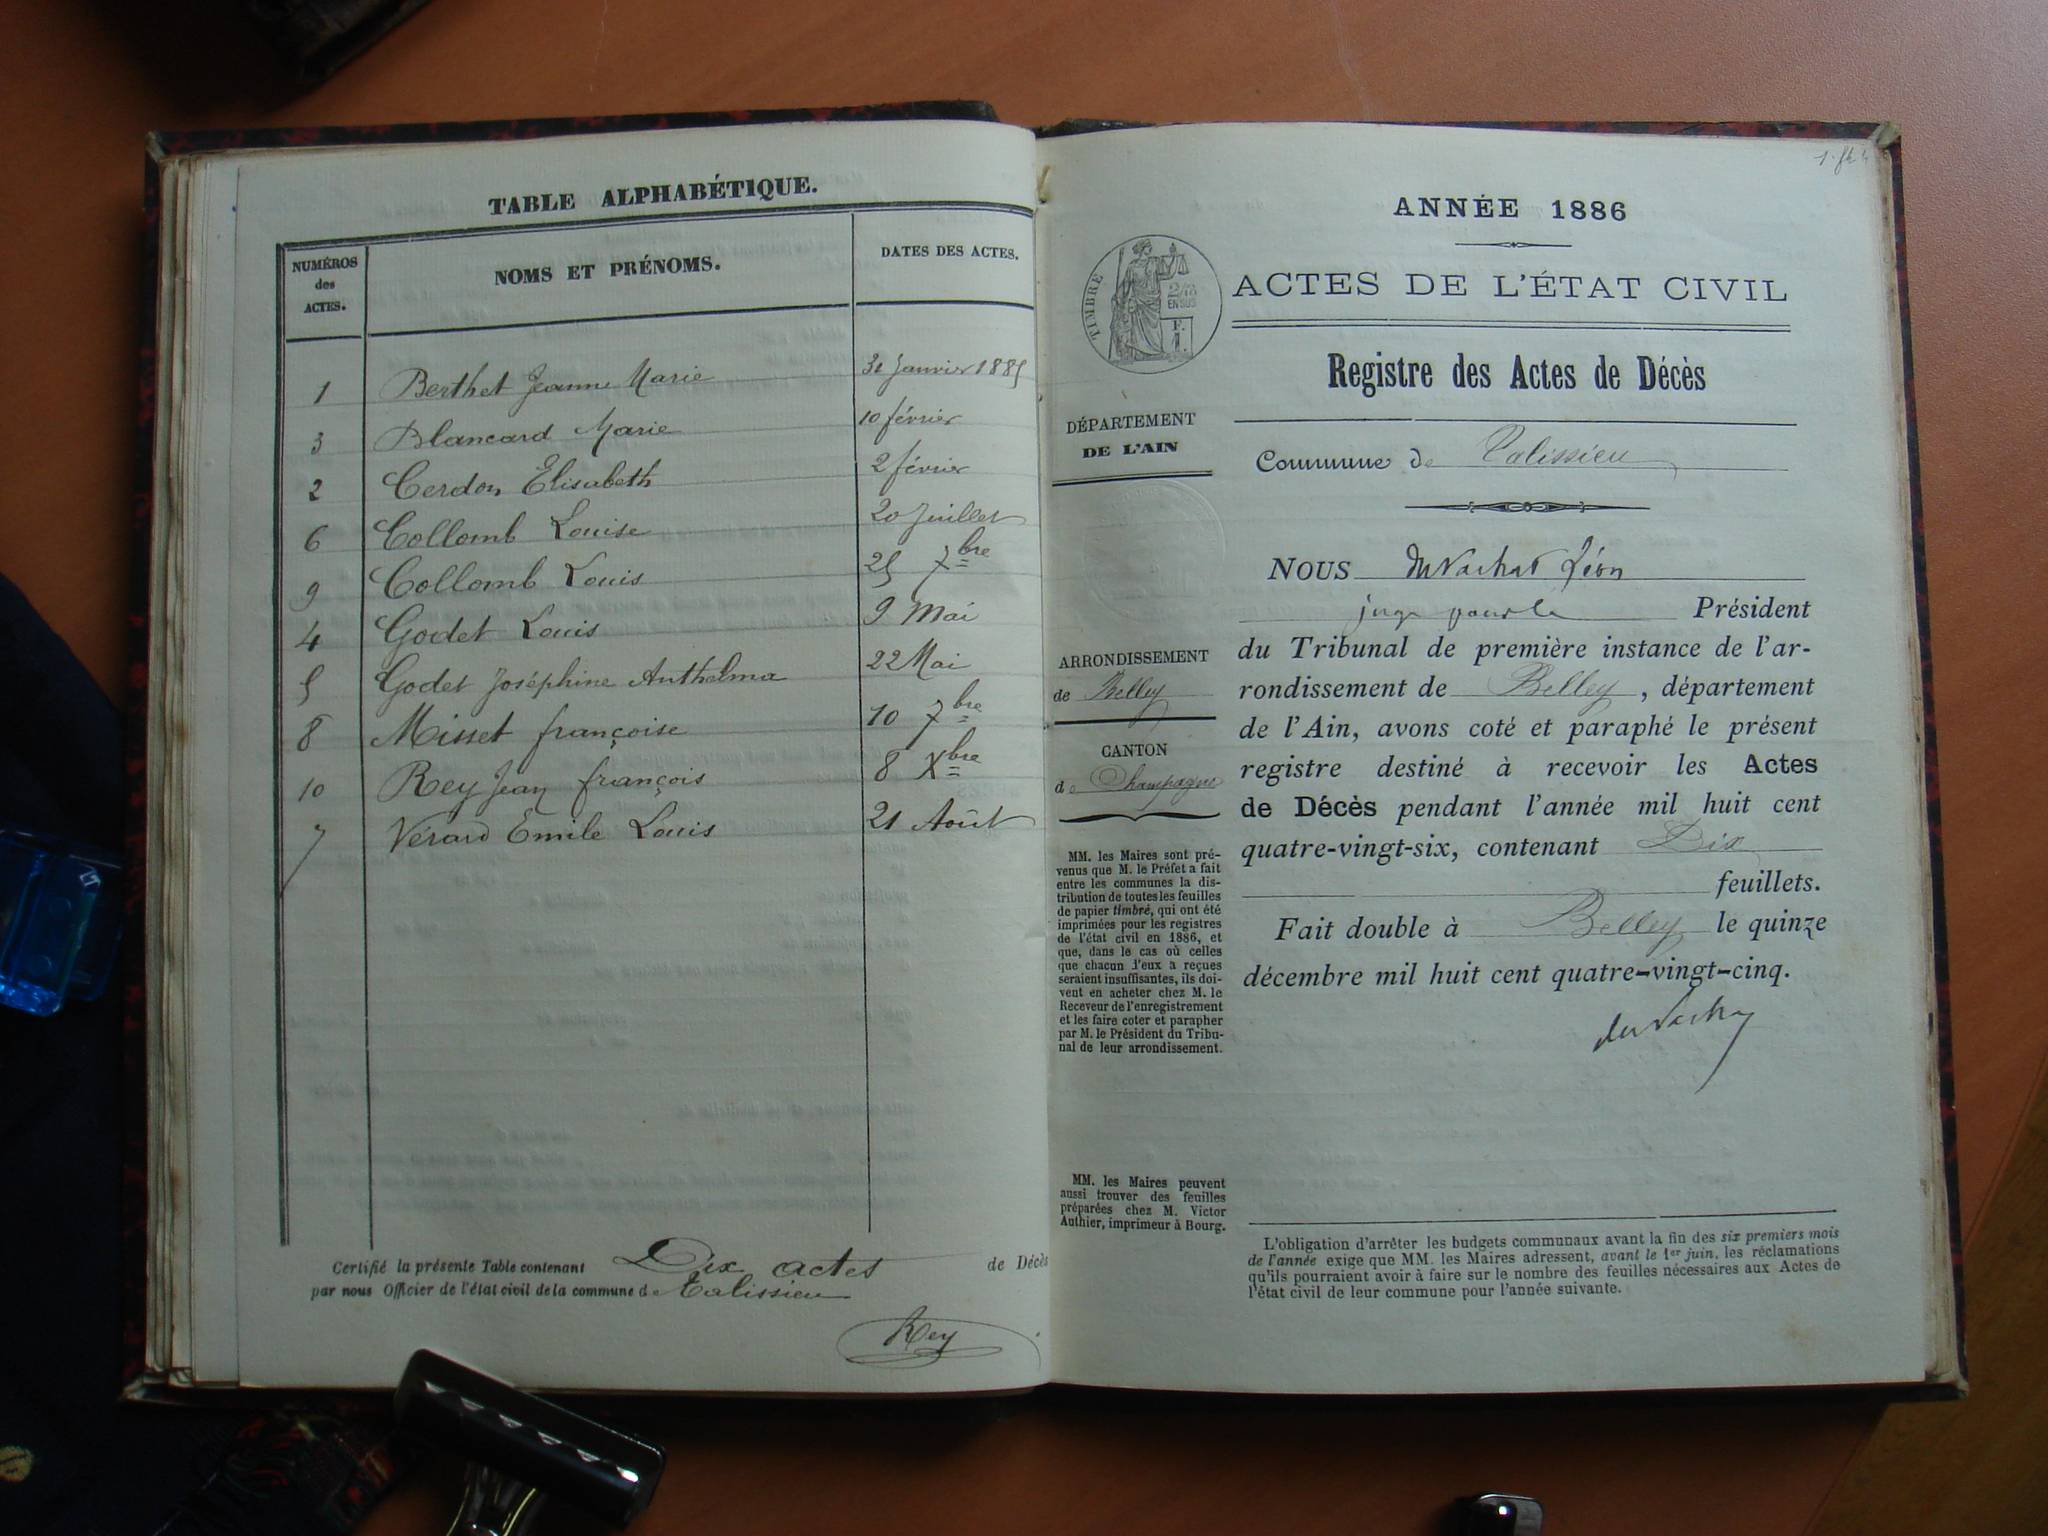 TABLE ALPHABÉTIQUE.
NUMÉROS des ACTES.
NOMS ET PRÉNOMS.
DATES DES ACTES.
1 Berthet Jeanne Marie 31 Janvier 1885
3 Blancard Marie 10 février
2 Cerdon Elisabeth 2 février
6 Collomb Louise 20 Juillet
9 Collomb Louis 25 7bre
4 Godet Louis 9 Mai
5 Godet Joséphine Anthelma 22 Mai
8 Misset françoise 10 7bre
10 Rey Jean françois 8 Xbre
7 Vérard Emile Louis 21 Août
Certifié la présente Table contenant Dix actes de Décès
par nous Officier de l'état civil de la commune de Talissieu
Rey
ANNÉE 1886
ACTES DE L'ÉTAT CIVIL
TIMBRE
EN SUS
Registre des Actes de Décès
DÉPARTEMENT
DE L'AIN
Commune de Talissieu
ARRONDISSEMENT
de Belley
CANTON
de Champagne
MM. les Maires sont pré-
venus que M. le Préfet a fait
entre les communes la dis-
tribution de toutes les feuilles
de papier timbré, qui ont été
imprimées pour les registres
de l'état civil en 1886, et
que, dans le cas où celles
que chacun d'eux a reçues
seraient insuffisantes, ils doi-
vent en acheter chez M. le
Receveur de l'enregistrement
et les faire coter et parapher
par M. le Président du Tribu-
nal de leur arrondissement.
MM. les Maires peuvent
aussi trouver des feuilles
préparées chez M. Victor
Authier, imprimeur à Bourg.
NOUS du Vachat Léon
juge pour le Président
du Tribunal de première instance de l'ar-
rondissement de Belley, département
de l'Ain, avons coté et paraphé le présent
registre destiné à recevoir les Actes
de Décès pendant l'année mil huit cent
quatre-vingt-six, contenant Dix
feuillets.
Fait double à Belley le quinze
décembre mil huit cent quatre-vingt-cinq.
du Vachat
L'obligation d'arrêter les budgets communaux avant la fin des six premiers mois
de l'année exige que MM. les Maires adressent, avant le 1er juin, les réclamations
qu'ils pourraient avoir à faire sur le nombre des feuilles nécessaires aux Actes de
l'état civil de leur commune pour l'année suivante.